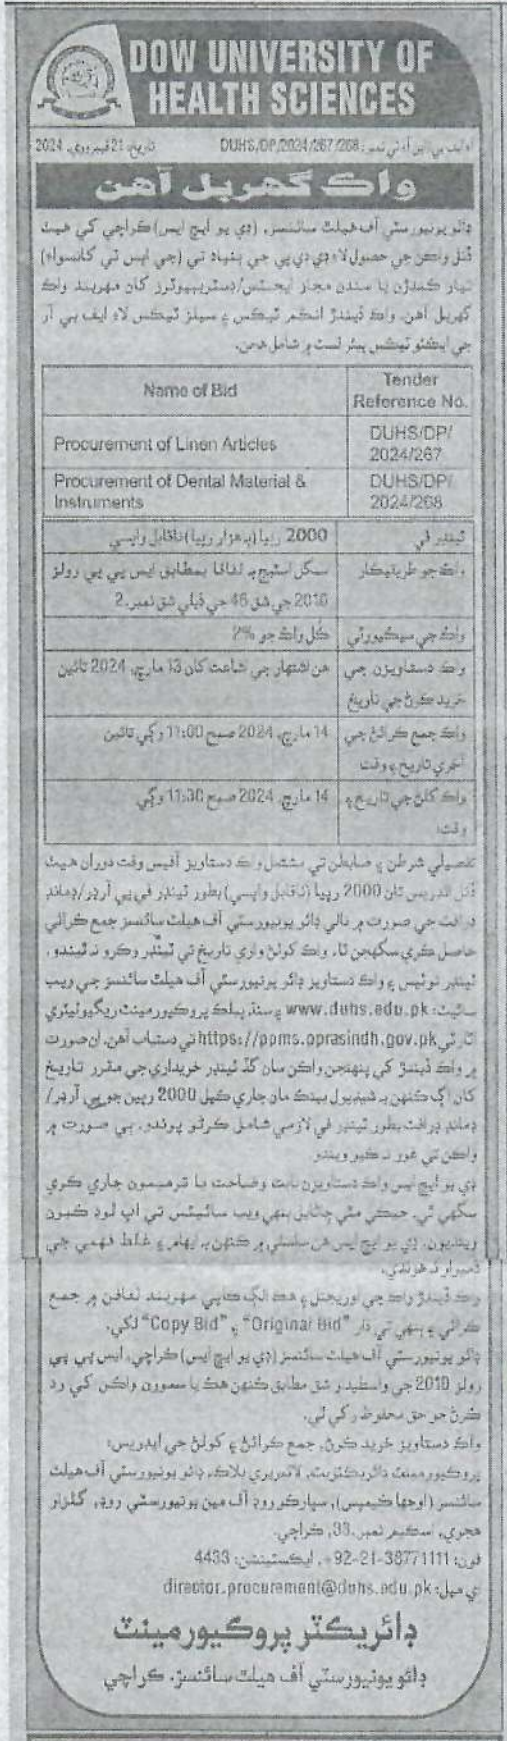 DOW UNIVERSITY OF
HEALTH SCIENCES
DUHS/DP/2024/267/268 تاريخ: 21 فيبروري، 2024
واڪ گهربل آهن
ڊائو يونيورسٽي آف هيلٿ سائنسز، (ڊي يو ايڇ ايس) ڪراچي کي هيٺ
ڏنل واڪن جي حصول لاءِ ڊي ڊي پي جي بنياد تي (جي ايس ٽي کانسواءِ)
تيار ڪندڙن يا سندن مجاز ايجنٽس/ڊسٽريبيوٽرز کان مهربند واڪ
گهربل آهن. واڪ ڏيندڙ انڪم ٽيڪس ۽ سيلز ٽيڪس لاءِ ايف بي آر
جي ايڪٽو ٽيڪس پيئر لسٽ ۾ شامل هجن.
Name of Bid
Tender
Reference No.
Procurement of Linen Articles
DUHS/DP/
2024/267
Procurement of Dental Material &
Instruments
DUHS/DP/
2024/268
ٽينڊر في 2000 رپيا (ٻه هزار رپيا) ناقابل واپسي
واڪ جو طريقيڪار سنگل اسٽيج ٻه لفافا بمطابق ايس پي پي رولز
2010 جي شق 46 جي ذيلي شق نمبر.2
واڪ جي سيڪيورٽي ڪُل واڪ جو %2
واڪ دستاويزن جي هن اشتهار جي شاعت کان 13 مارچ، 2024 تائين
خريد ڪرڻ جي تاريخ
واڪ جمع ڪرائڻ جي 14 مارچ، 2024 صبح 11:00 وڳي تائين
آخري تاريخ ۽ وقت
واڪ کلڻ جي تاريخ ۽ 14 مارچ، 2024 صبح 11:30 وڳي
وقت:
تفصيلي شرطن ۽ ضابطن تي مشتمل واڪ دستاويز آفيس وقت دوران هيٺ
ڏنل ائڊريس تان 2000 رپيا (ناقابل واپسي) بطور ٽينڊر في پي آرڊر/ڊمانڊ
ڊرافٽ جي صورت ۾ نالي ڊائو يونيورسٽي آف هيلٿ سائنسز جمع ڪرائي
حاصل ڪري سگهجن ٿا. واڪ کولڻ واري تاريخ تي ٽينڊر وڪرو نه ٿيندو.
ٽينڊر نوٽيس ۽ واڪ دستاويز ڊائو يونيورسٽي آف هيلٿ سائنسز جي ويب
سائيٽ: www.duhs.edu.pk ۽ سنڌ پبلڪ پروڪيورمينٽ ريگيوليٽري
اٿارٽي https://ppms.pprasindh.gov.pk تي دستياب آهن. ان صورت
۾ واڪ ڏيندڙ کي پنهنجن واڪن سان گڏ ٽينڊر خريداري جي مقرر تاريخ
کان اڳ ڪنهن به شيڊيول بينڪ مان جاري ڪيل 2000 رپين جو پي آرڊر/
ڊمانڊ ڊرافٽ بطور ٽينڊر في لازمي شامل ڪرڻو پوندو. ٻي صورت ۾
واڪن تي غور نه ڪيو ويندو
ڊي يو ايڇ ايس واڪ دستاويزن بابت وضاحت يا ترميمون جاري ڪري
سگهي ٿي، جيڪي مٿي ڄاڻايل ٻنهي ويب سائيٽس تي اپ لوڊ ڪيون
وينديون. ڊي يو ايڇ ايس هن سلسلي ۾ ڪنهن به ابهام ۽ غلط فهمي جي
ذميوار نه هوندي.
واڪ ڏيندڙ واڪ جي اوريجنل ۽ هڪ الڳ ڪاپي مهربند لفافن ۾ جمع
ڪرائي ۽ ٻنهي تي “Original Bid” ۽ “Copy Bid” لکي.
ڊائو يونيورسٽي آف هيلٿ سائنسز (ڊي يو ايڇ ايس) ڪراچي، ايس پي پي
رولز 2010 جي واسطيدار شق مطابق ڪنهن هڪ يا سمورن واڪن کي رد
ڪرڻ جو حق محفوظ رکي ٿي.
واڪ دستاويز خريد ڪرڻ، جمع ڪرائڻ ۽ کولڻ جي ايڊريس:
پروڪيورمينٽ ڊائريڪٽوريٽ، لائبريري بلاڪ، ڊائو يونيورسٽي آف هيلٿ
سائنسز (اوجها ڪيمپس)، سپارڪو روڊ آف مين يونيورسٽي روڊ، گلزار
هجري، اسڪيم نمبر.33، ڪراچي.
فون: 92-21-38771111+، ايڪسٽينشن: 4433
اي ميل: director.procurement@duhs.edu.pk
ڊائريڪٽر پروڪيورمينٽ
ڊائو يونيورسٽي آف هيلٿ سائنسز، ڪراچي